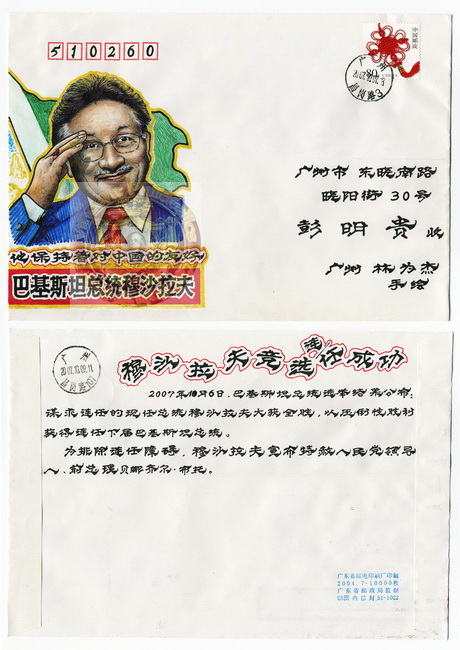 510260
中国邮政
80
广州
广州市 东晓南路
晓阳街30号
彭明贵 收
广州 林为杰
手绘
他保持着对中国的友好
巴基斯坦总统穆沙拉夫
广州
2007.10.09.11
穆沙拉夫竞选连任成功
2007年10月6日，巴基斯坦总统选举结果公布：
谋求连任的现任总统穆沙拉夫大获全胜，以压倒性胜利
获得连任下届巴基斯坦总统。
为排除连任障碍，穆沙拉夫宣布特赦人民党领导
人、前总理贝娜齐尔·布托。
广东省邮电印刷厂印刷
2004.7-10000枚
广东省邮政局监制
CS国内已封51-1022